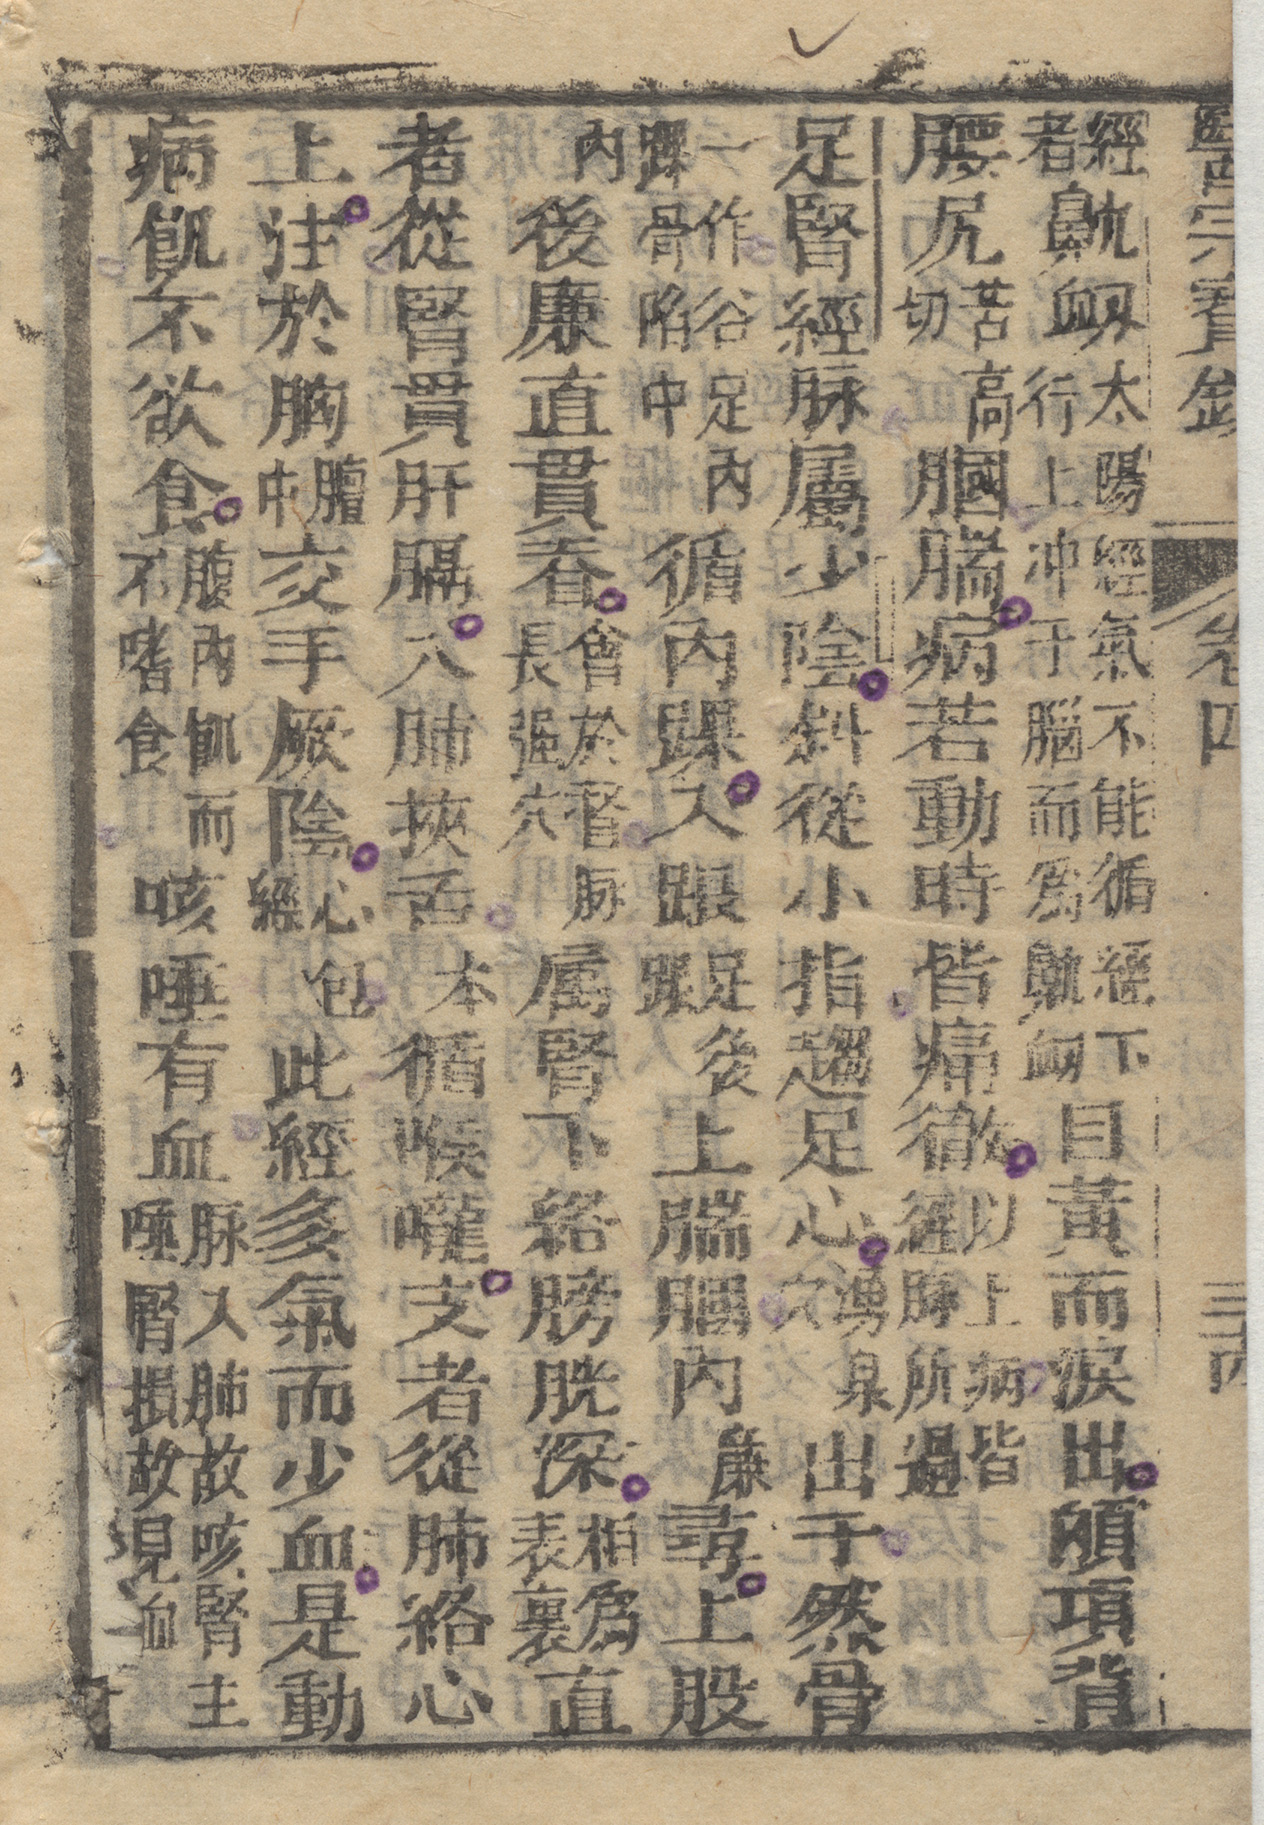 醫宗寶
卷四
經者鼽衄太陽經氣不能循經下行上冲于腦而爲鼽衄目黃而淚出顖項背
腰尻苦高切膕腨病若動時皆痛徹以上病皆經脉所過
足腎經脉屬少陰斜從小指趨足心湧泉穴出于然骨
一作谷足內踝骨陷中循內踝入跟足後跟上腨膕內廉尋上股
內後廉直貫脊會於督脉長强穴属腎下絡膀胱深相爲表裏直
者從腎貫肝膈入肺挾舌本循喉嚨支者從肺絡心
上注於胸膻中交手厥陰心包經此經多氣而少血是動
病飢不欲食腹內飢而不嗜食咳唾有血脉入肺故咳腎主唾腎損故見血